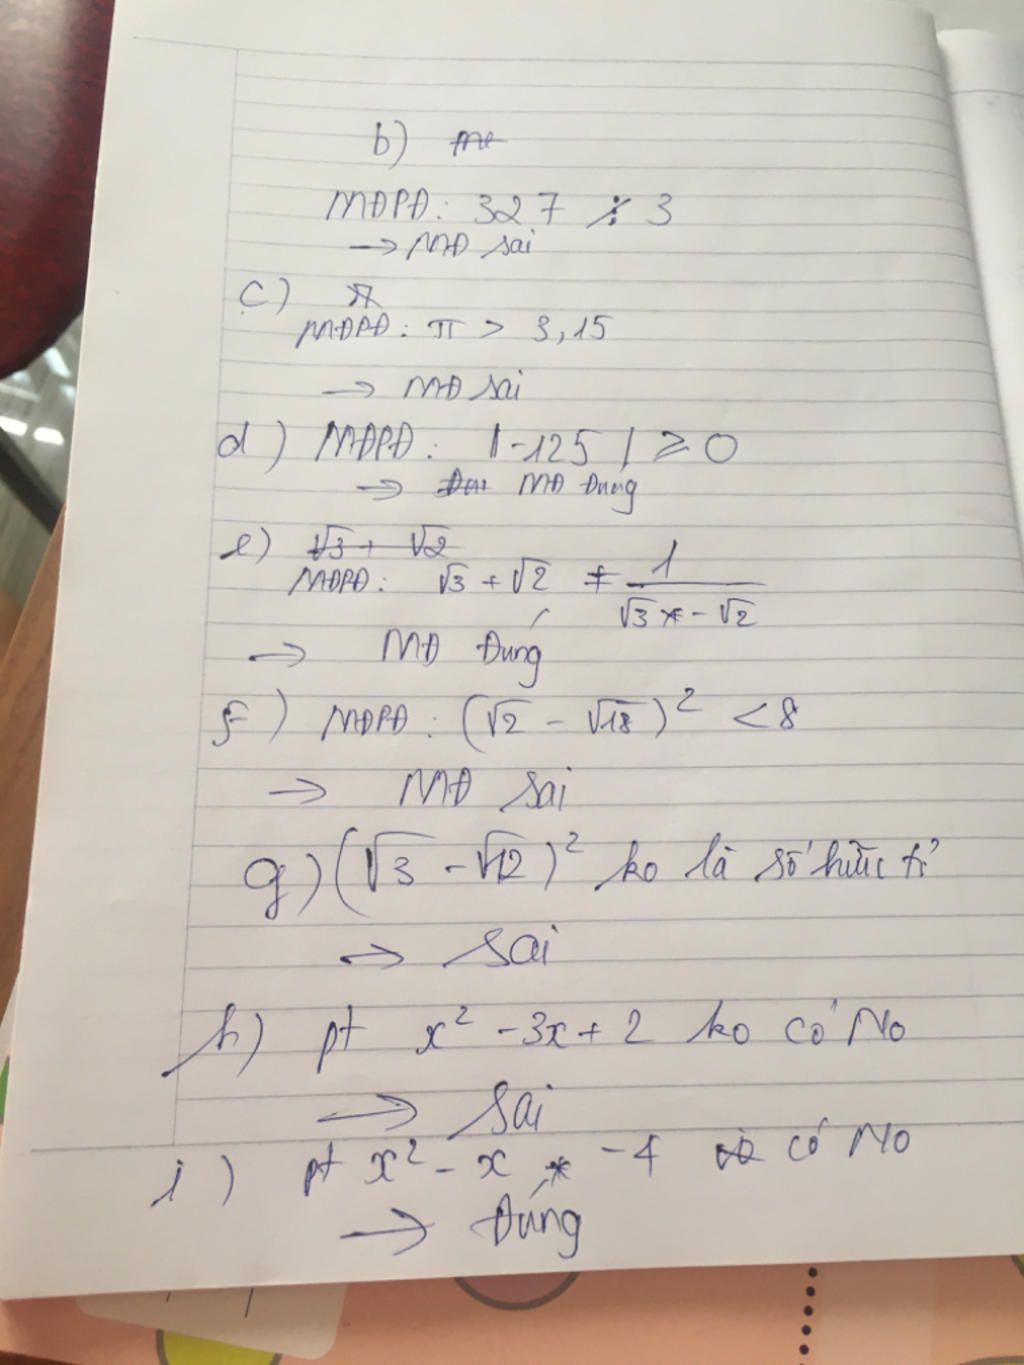 b)
MĐPĐ: 327 ⋮̸ 3
→ MĐ sai
c)
MĐPĐ: π > 3,15
→ MĐ sai
d) MĐPĐ: |-125| ≥ 0
→ MĐ Đúng
e) √3 + √2
MĐPĐ: √3 + √2 ≠ 1/(√3 - √2)
→ MĐ Đúng
f) MĐPĐ: (√2 - √18)² < 8
→ MĐ sai
g) (√3 - √12)² ko là số hữu tỉ
→ sai
h) pt x² - 3x + 2 ko có No
→ sai
i) pt x² - x - 4 có No
→ Đúng